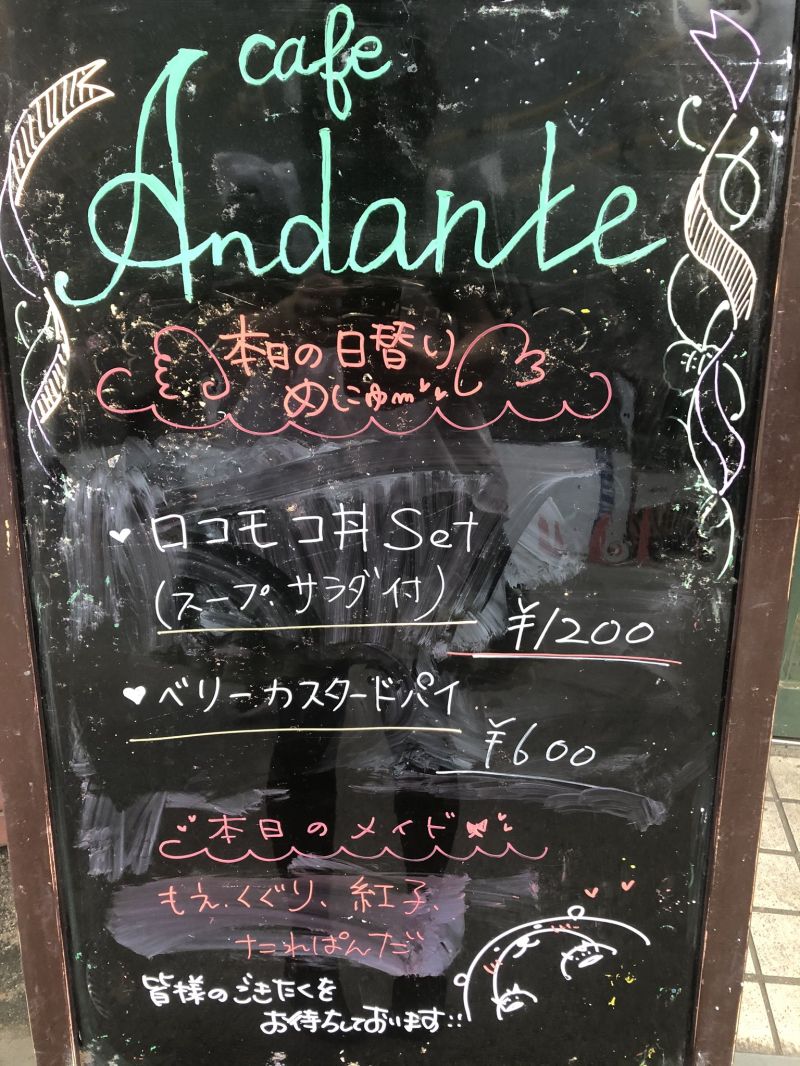 cafe
Andante
本日の日替り
めにゅm
ロコモコ丼 Set
(スープ、サラダ付)
¥1200
ベリーカスタードパイ
¥600
本日のメイド
もえ、くぐり、紅子、
たれぱんだ
皆様のごきたくを
お待ちしております!!